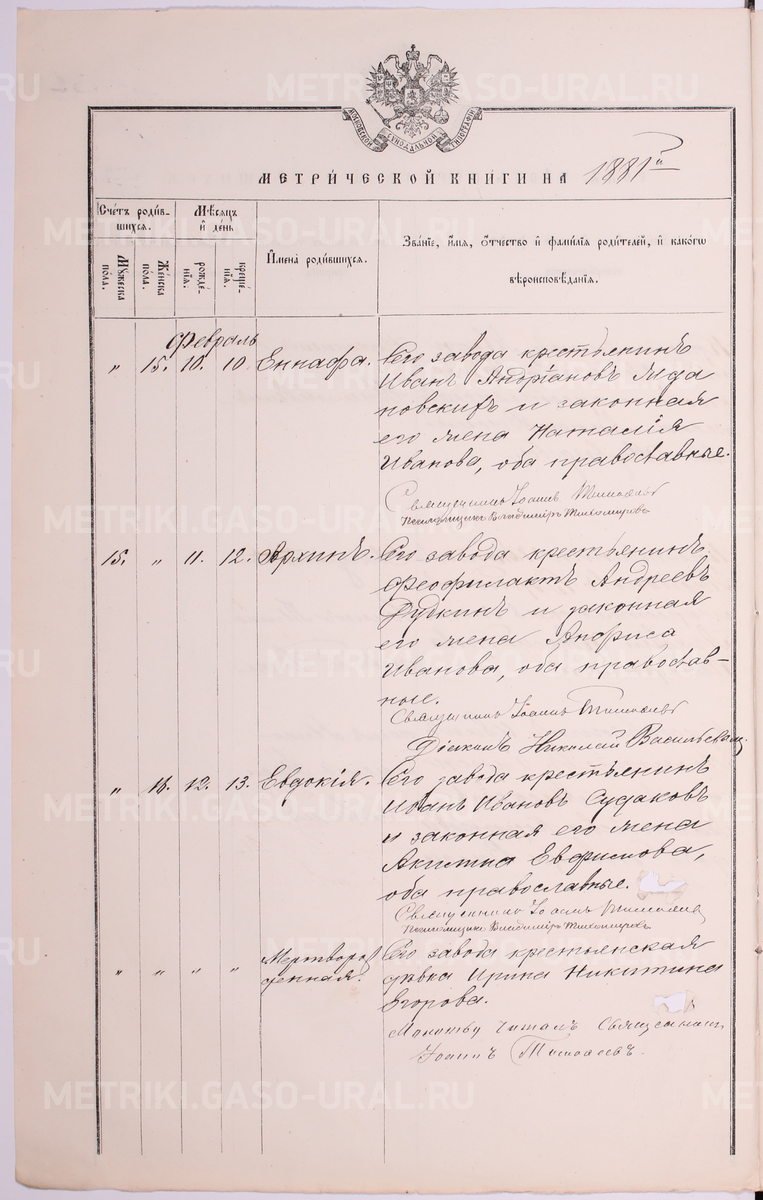 МОСКОВСКОЙ СѴНОДАЛЬНОЙ ТИПОГРАФІИ
МЕТРИ́ЧЕСКОЙ КНИ́ГИ НА 1881й
Сче́тъ роди́в-
шихся.
Мѣ́сяцъ
и҆ де́нь
И҆мена̀ роди́вшихся.
Зва́нїе, и҆́мя, ѻ҆́тчество и҆ фами́лїя роди́телей, и҆ како́гѡ
вѣроисповѣ́данїя.
Мꙋ́жеска по́ла.
Же́нска по́ла.
рожде́-нїя.
креще́-нїя.
Февраль
" 15. 10. 10 Еннафа. Сего завода крестьянинъ
Иванъ Андріановъ
и законная
его жена Наталія
Иванова, оба православные.
Священникъ Іоаннъ
Псаломщикъ Владиміръ Тихомировъ
15. " 11. 12. Архипъ. Сего завода крестьянинъ
Феофилактъ Андреевъ
Дудкинъ и законная
его жена Анфиса
Иванова, оба православ-
ные.
Священникъ Іоаннъ
Діаконъ Николай Васильевскій
" 16. 12. 13. Евдокія. Сего завода крестьянинъ
Иванъ Ивановъ Судаковъ
и законная его жена
Акилина Евфимова,
оба православные.
Священникъ Іоаннъ
Псаломщикъ Владиміръ Тихомировъ
" " " " Мертворож
денная. Сего завода крестьянская
дѣвка Ирина Никитина
Егорова.
Молитву читалъ Священникъ
Іоаннъ
METRIKI.GASO-URAL.RU